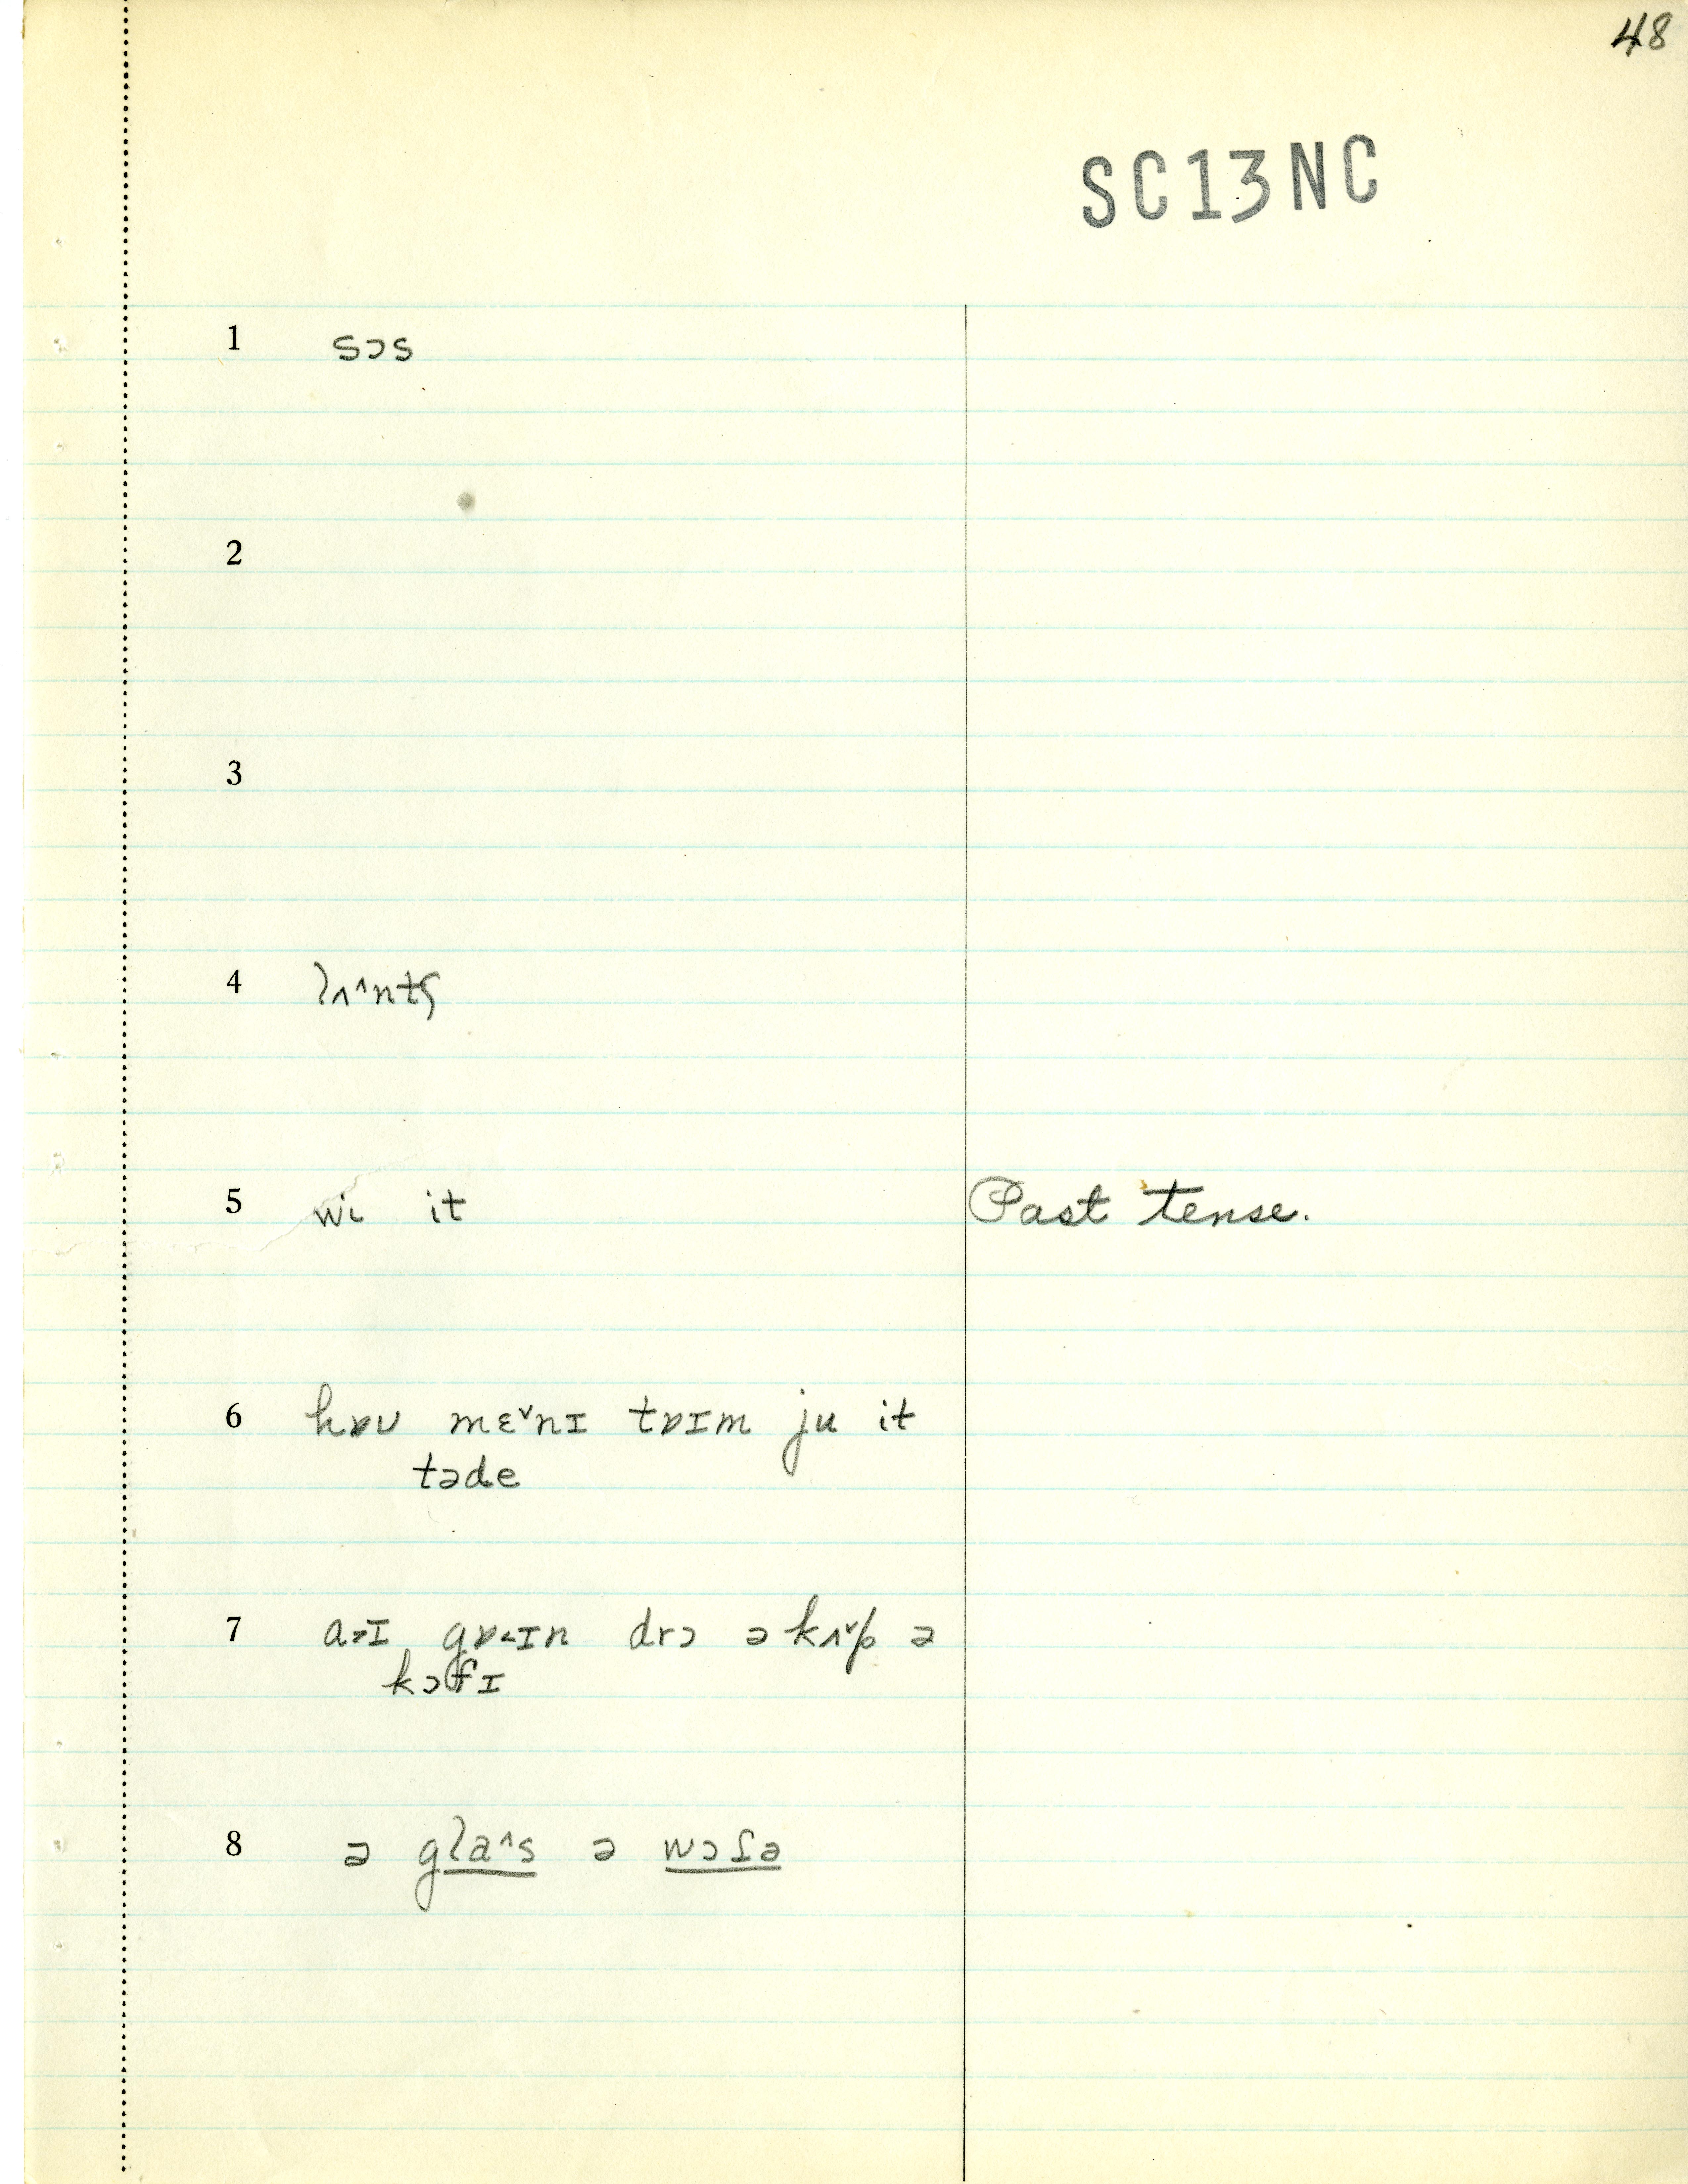 48
SC13NC
1 sɔs
2
3
4 lʌ˄ntʃ
5 wi it Past tense.
6 hɒʊ mɛ˅nɪ tɒɪm ju it
təde
7 a˃ɪ gɒ˂ɪn drɔ ə kʌ˅p ə
kɔfɪ
8 ə gla˄s ə wɔɾə